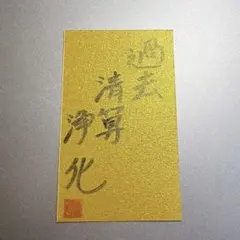 過去
清算
浄化